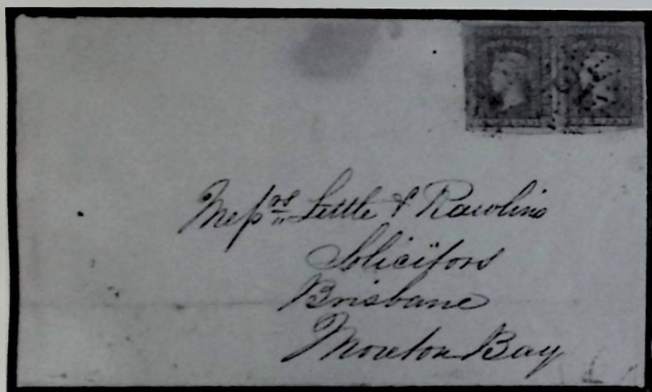 Messrs Little & Rawlins
Solicitors
Brisbane
Moreton Bay